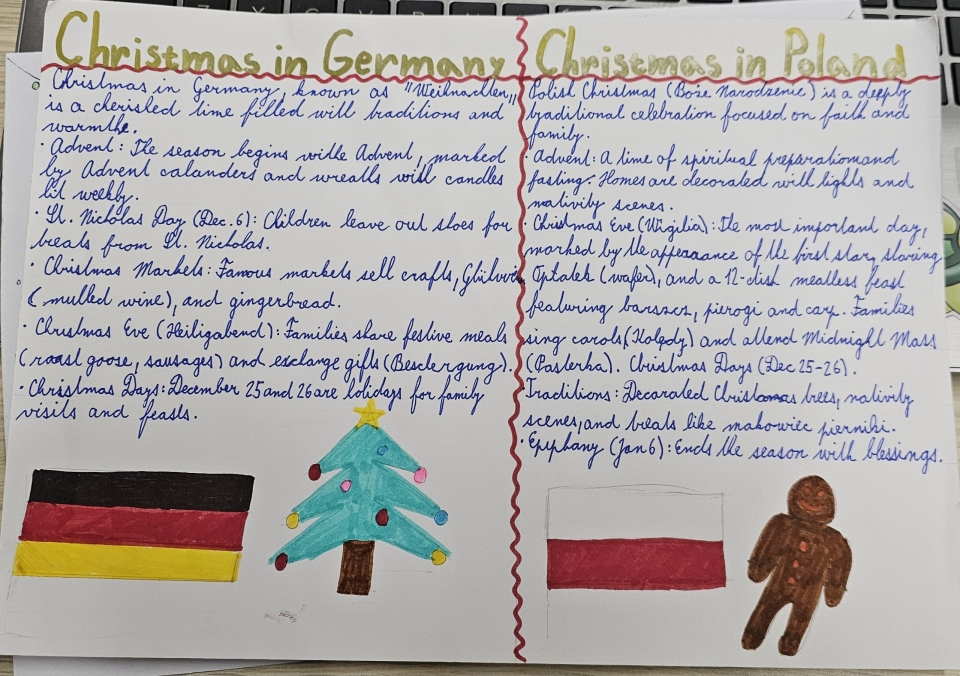 Christmas in Germany
Christmas in Germany, known as "Weihnachten„
is a cherished time filled with traditions and
warmthe.
· Advent: The season begins withe Advent, marked
by Advent calanders and wreaths with candles
lit weekly.
· St. Nicholas Day (Dec. 6): Children leave out shoes for
treats from St. Nicholas.
· Christmas Markets: Famous markets sell crafts, Glühwein
(mulled wine), and gingerbread.
· Christmas Eve (Heiligabend): Families share festive meals
(roast goose, sausages) and exchange gifts (Beschergung).
· Christmas Days: December 25 and 26 are holidays for family
visits and feasts.
Christmas in Poland
Polish Christmas (Boże Narodzenie) is a deeply
traditional celebration focused on faith and
family.
· Advent: A time of spiritual preparation and
fasting. Homes are decorated with lights and
nativity scenes.
· Christmas Eve (Wigilia): The most important day,
marked by the appearance of the first star, sharing
Opłatek (wafer), and a 12-dish meatless feast
featuring barszcz, pierogi and carp. Families
sing carols, (Kolędy) and attend Midnight Mass
(Pasterka). Christmas Days (Dec 25-26).
Traditions: Decorated Christmas trees, nativity
scenes, and treats like makowiec pierniki.
· Epiphany (Jan 6): Ends the season with blessings.